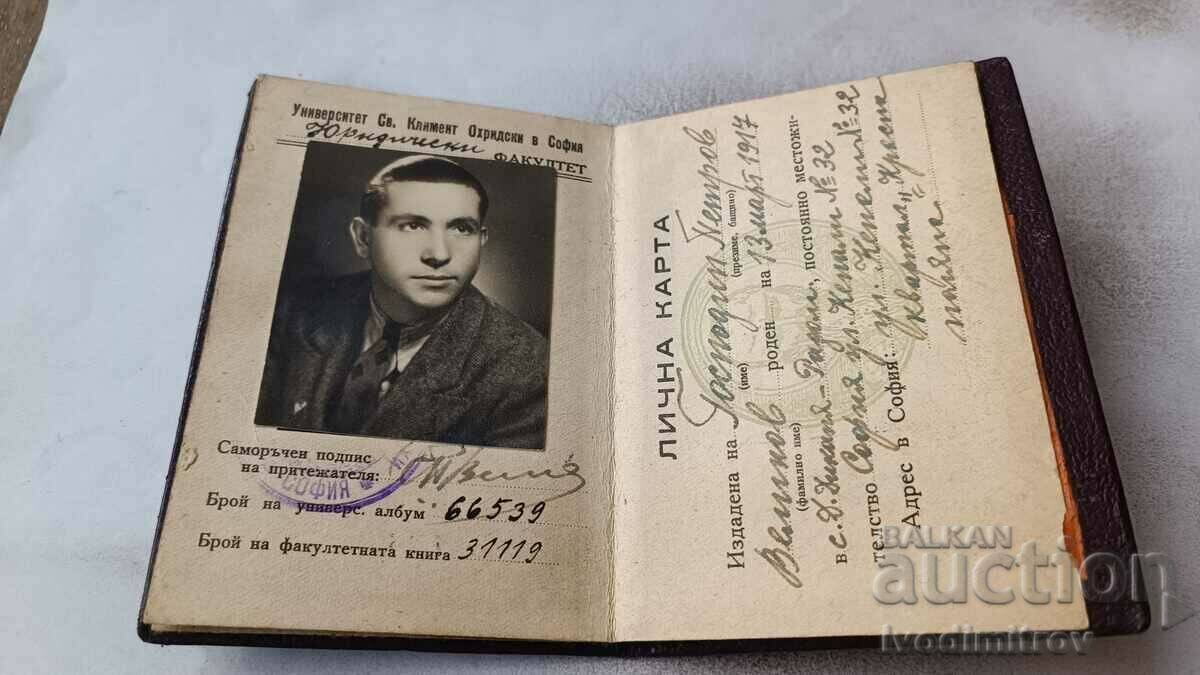 Университет Св. Климент Охридски в София
Юридически ФАКУЛТЕТ
Саморъчен подпис
на притежателя:
СОФИЯ
Брой на универс. албум 66539
Брой на факултетната книга 31119
ЛИЧНА КАРТА
Издадена на Господин Петров
(име) (презиме, бащино)
Великов роден на 13 март 1917
(фамилно име)
в с. Д. постоянно местожи-
телство София ул. № 32
Адрес в София: ул. № 32
квартал „
BALKAN
auction
Ivodimitrov